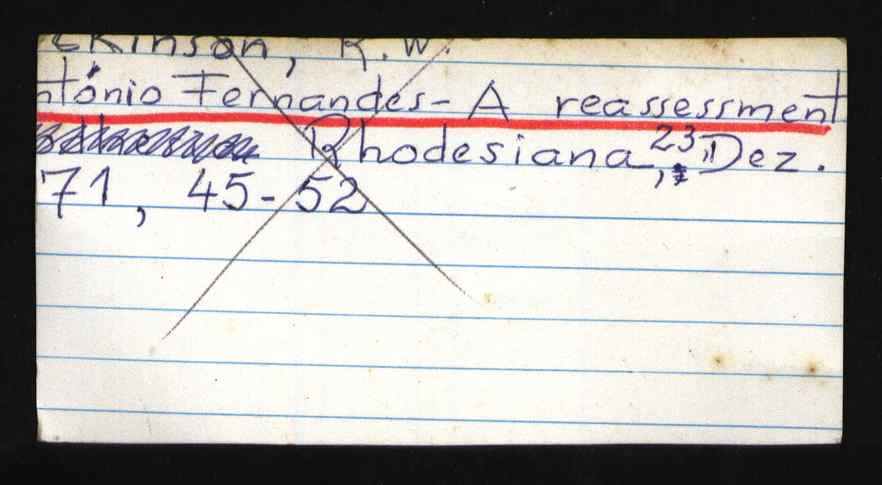 ckinson, R.W.
ntónio Fernandes - A reassessment
Rhodesiana, 23, Dez.
71, 45-52